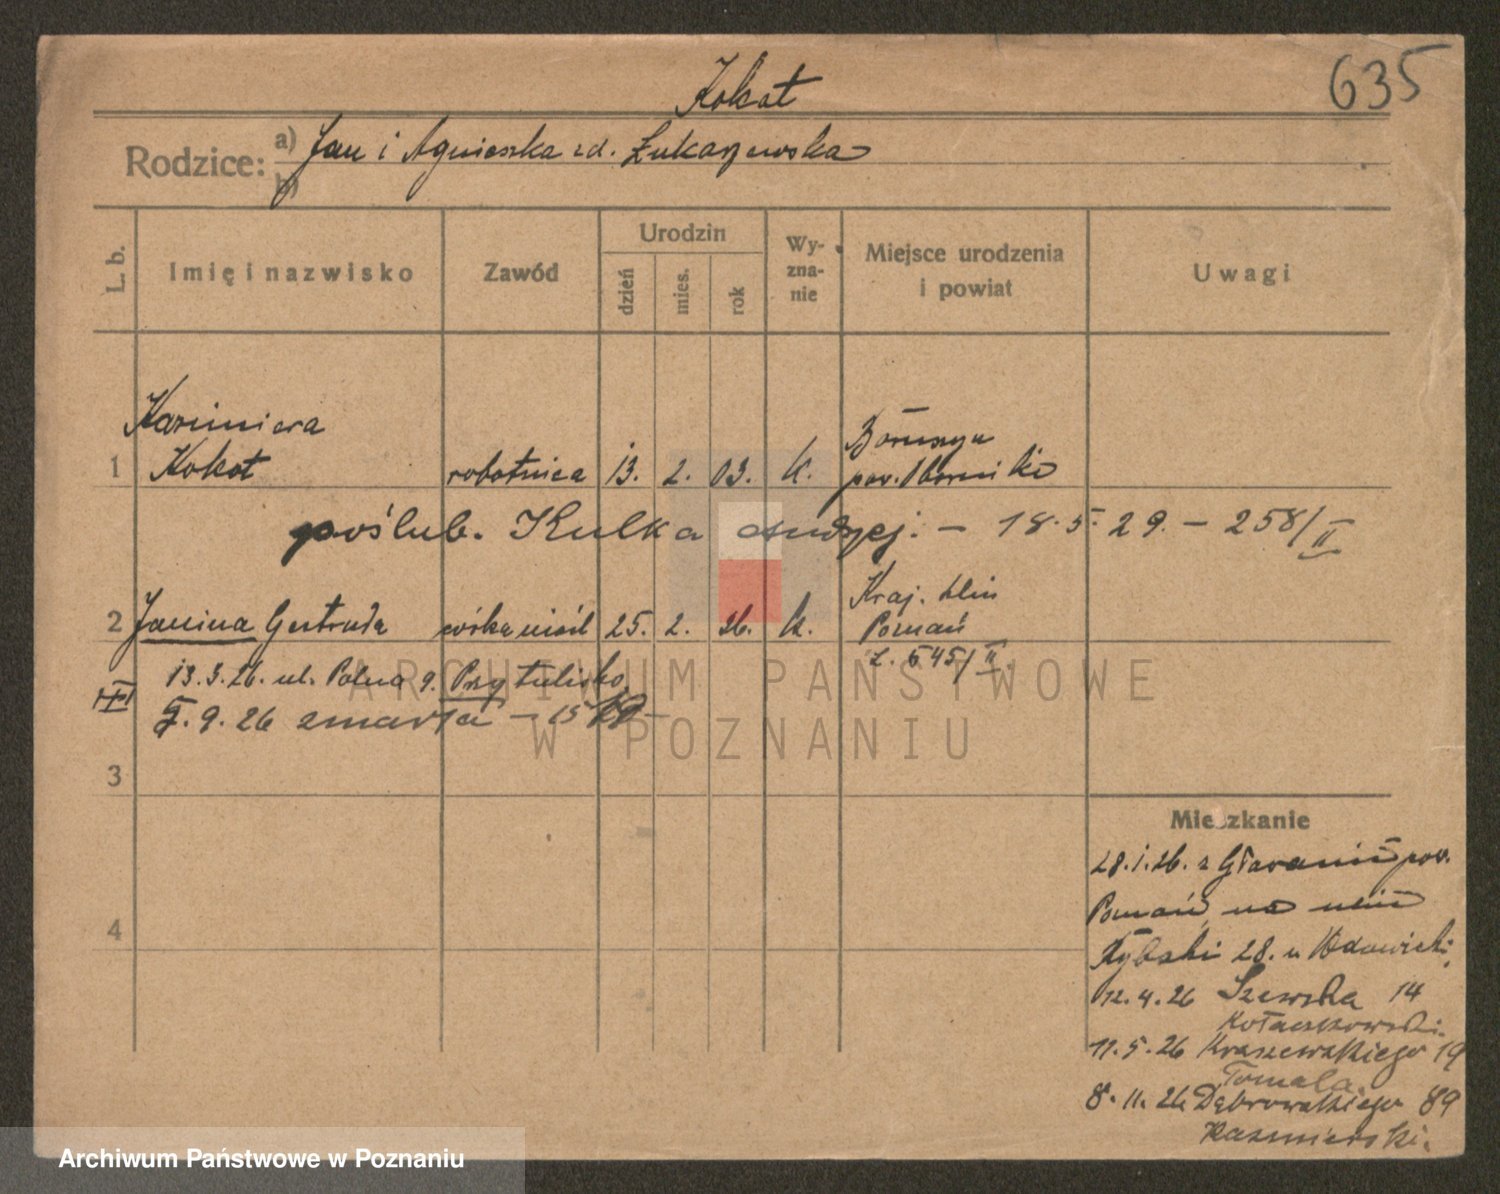 Kokot
635
Rodzice: a) Jan i Agnieszka zd. Łukaszewska
b)
L. b.
Imię i nazwisko
Zawód
Urodzin
dzień
mies.
rok
Wy-
zna-
nie
Miejsce urodzenia
i powiat
Uwagi
Kazimiera
Boruszyn
1 Kokot robotnica 13. 2. 03. k. pow. Oborniki
poślub. Kulka Andrzej. – 18.5.29. – 258/II
Kraj. klin
2 Janina Gertruda córka nieśl 25. 2. 26. k. Poznań
L. 545/II.
13.3.26. ul. Polna 9. Przytulisko
9.26 zmarła – 15
3
4
Mieszkanie
28.1.26. z pow.
Poznań na
Rybaki 28. u
12.4.26 Szewska 14
Kołaczkowski.
11.5.26 Kraszewskiego 19
Tomala.
8.11.26 Dąbrowskiego 89
Kazmierski.
ARCHIWUM PAŃSTWOWE
W POZNANIU
Archiwum Państwowe w Poznaniu